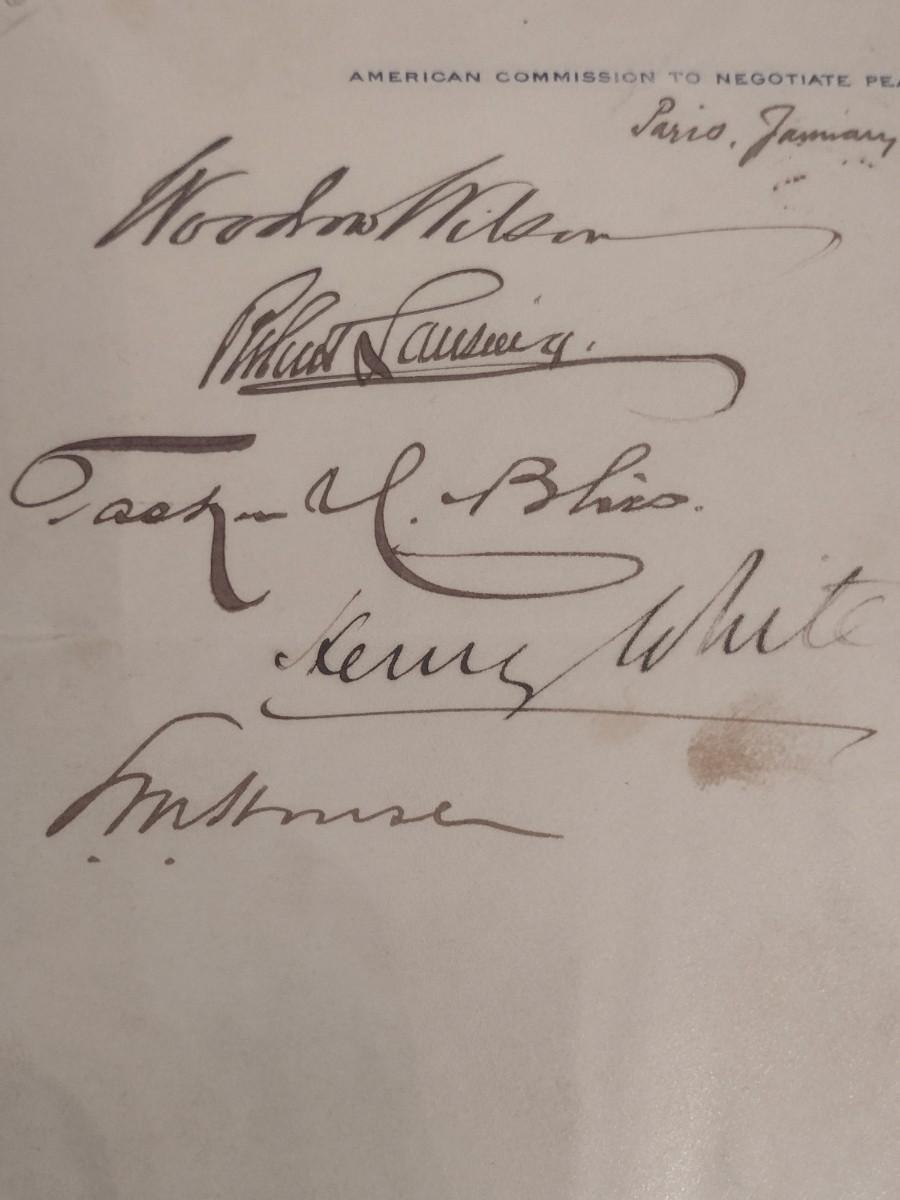 AMERICAN COMMISSION TO NEGOTIATE PEA
Paris, January
Woodrow Wilson
Robert Lansing.
Tasker H. Bliss.
Henry White
E.M. House